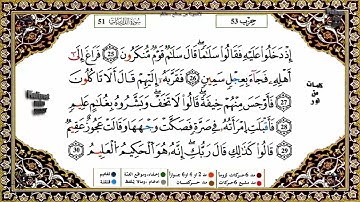 حِزْب 53
سُورَةُ الذَّارِيَات 51
إِذْ دَخَلُوا۟ عَلَيْهِ فَقَالُوا۟ سَلَٰمًا ۖ قَالَ سَلَٰمٌ قَوْمٌ مُّنكَرُونَ 25 فَرَاغَ إِلَىٰٓ
أَهْلِهِۦ فَجَآءَ بِعِجْلٍ سَمِينٍ 26 فَقَرَّبَهُۥٓ إِلَيْهِمْ قَالَ أَلَا تَأْكُلُونَ
27 فَأَوْجَسَ مِنْهُمْ خِيفَةً ۖ قَالُوا۟ لَا تَخَفْ ۖ وَبَشَّرُوهُ بِغُلَٰمٍ عَلِيمٍ
28 فَأَقْبَلَتِ ٱمْرَأَتُهُۥ فِى صَرَّةٍ فَصَكَّتْ وَجْهَهَا وَقَالَتْ عَجُوزٌ عَقِيمٌ
29 قَالُوا۟ كَذَٰلِكِ قَالَ رَبُّكِ ۖ إِنَّهُۥ هُوَ ٱلْحَكِيمُ ٱلْعَلِيمُ 30
كلمات
من
نور